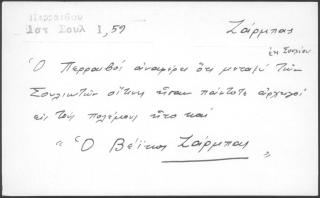 Περραιβου
Ιστ Σουλ 1,59
Ζάρμπας
ἐκ Σουλίου
Ὁ Περραιβός ἀναφέρει ὅτι μεταξύ τῶν
Σουλιωτῶν οἵτινες ἦσαν πάντοτε ἀρχηγοί
εἰς τούς πολέμους ἦτο καί
" Ὁ Βέϊκος Ζάρμπας "